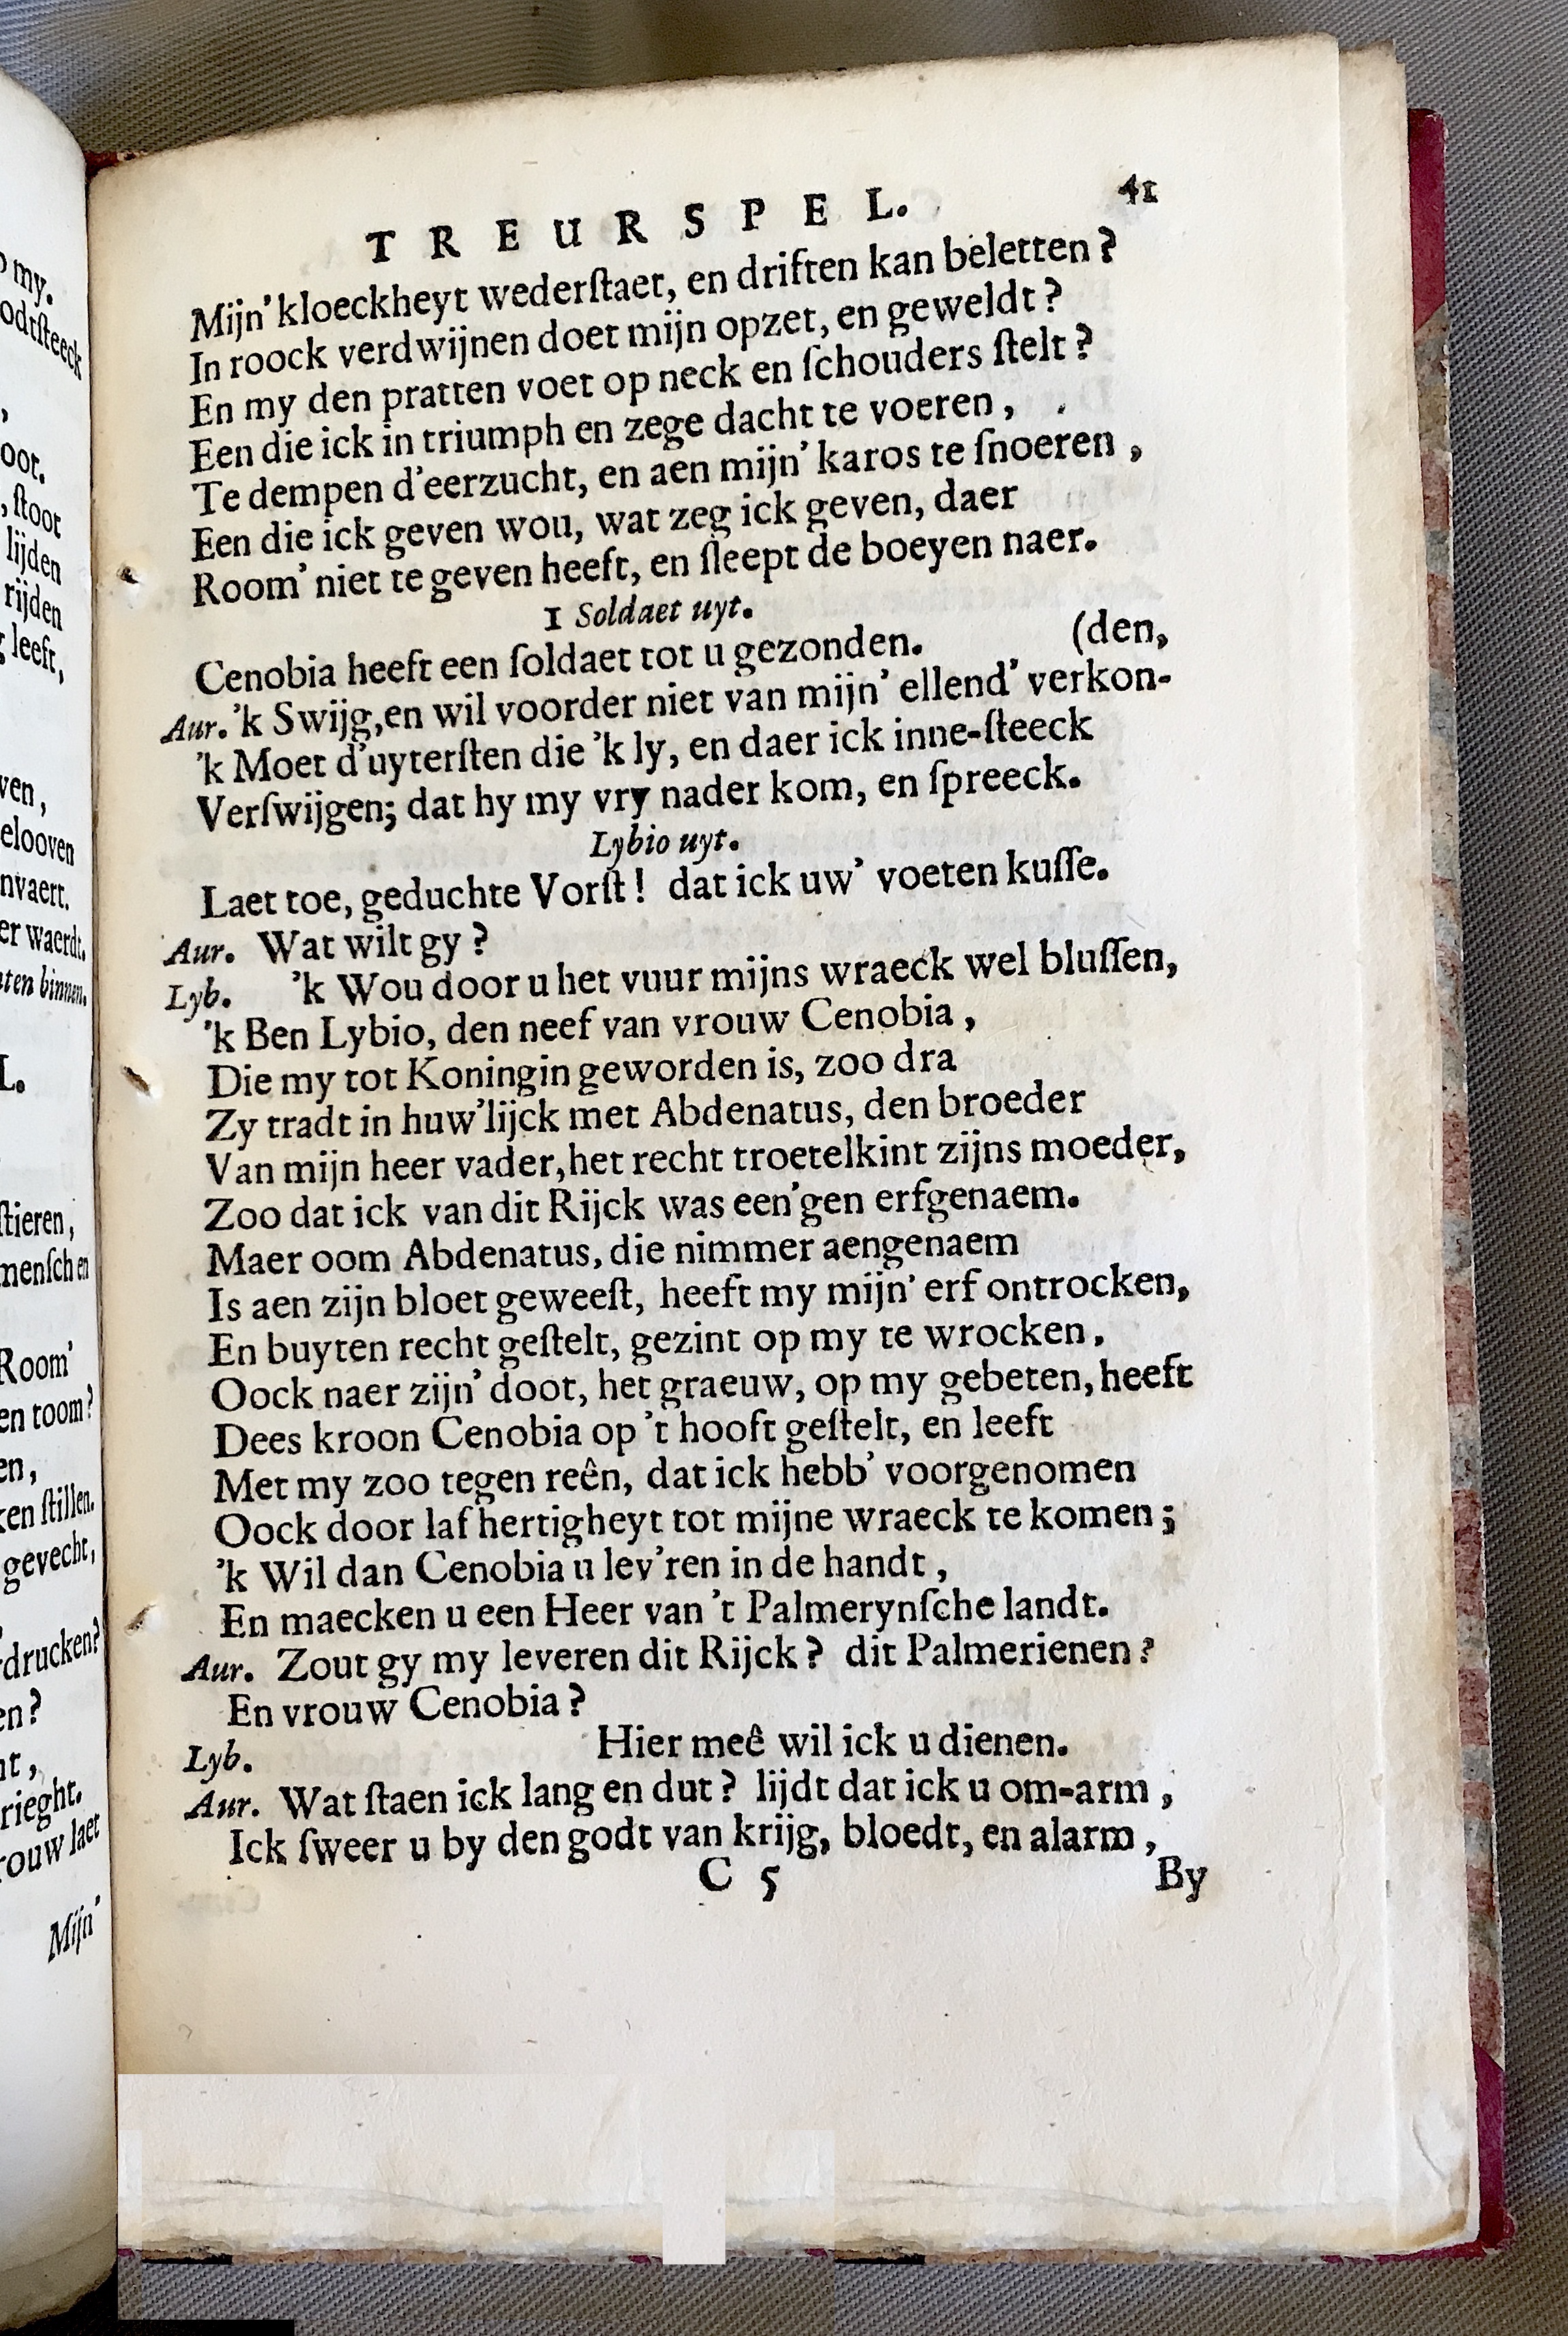 TREURSPEL. 41
Mijn' kloeckheyt wederſtaet, en driften kan beletten?
In roock verdwijnen doet mijn opzet, en geweldt?
En my den pratten voet op neck en ſchouders ſtelt?
Een die ick in triumph en zege dacht te voeren,
Te dempen d'eerzucht, en aen mijn' karos te ſnoeren,
Een die ick geven wou, wat zeg ick geven, daer
Room' niet te geven heeft, en ſleept de boeyen naer.
1 Soldaet uyt.
Cenobia heeft een ſoldaet tot u gezonden. (den,
Aur. 'k Swijg, en wil voorder niet van mijn' ellend' verkon-
'k Moet d'uyterſten die 'k ly, en daer ick inne-ſteeck
Verſwijgen; dat hy my vry nader kom, en ſpreeck.
Lybio uyt.
Laet toe, geduchte Vorſt! dat ick uw' voeten kuſſe.
Aur. Wat wilt gy?
Lyb. 'k Wou door u het vuur mijns wraeck wel bluſſen,
'k Ben Lybio, den neef van vrouw Cenobia,
Die my tot Koningin geworden is, zoo dra
Zy tradt in huw'lijck met Abdenatus, den broeder
Van mijn heer vader, het recht troetelkint zijns moeder,
Zoo dat ick van dit Rijck was een'gen erfgenaem.
Maer oom Abdenatus, die nimmer aengenaem
Is aen zijn bloet geweeſt, heeft my mijn' erf ontrocken,
En buyten recht geſtelt, gezint op my te wrocken.
Oock naer zijn' doot, het graeuw, op my gebeten, heeft
Dees kroon Cenobia op 't hooft geſtelt, en leeft
Met my zoo tegen reên, dat ick hebb' voorgenomen
Oock door laf hertigheyt tot mijne wraeck te komen;
'k Wil dan Cenobia u lev'ren in de handt,
En maecken u een Heer van 't Palmerynſche landt.
Aur. Zout gy my leveren dit Rijck? dit Palmerienen?
En vrouw Cenobia?
Lyb. Hier meê wil ick u dienen.
Aur. Wat ſtaen ick lang en dut? lijdt dat ick u om-arm,
Ick ſweer u by den godt van krijg, bloedt, en alarm,
C 5 By